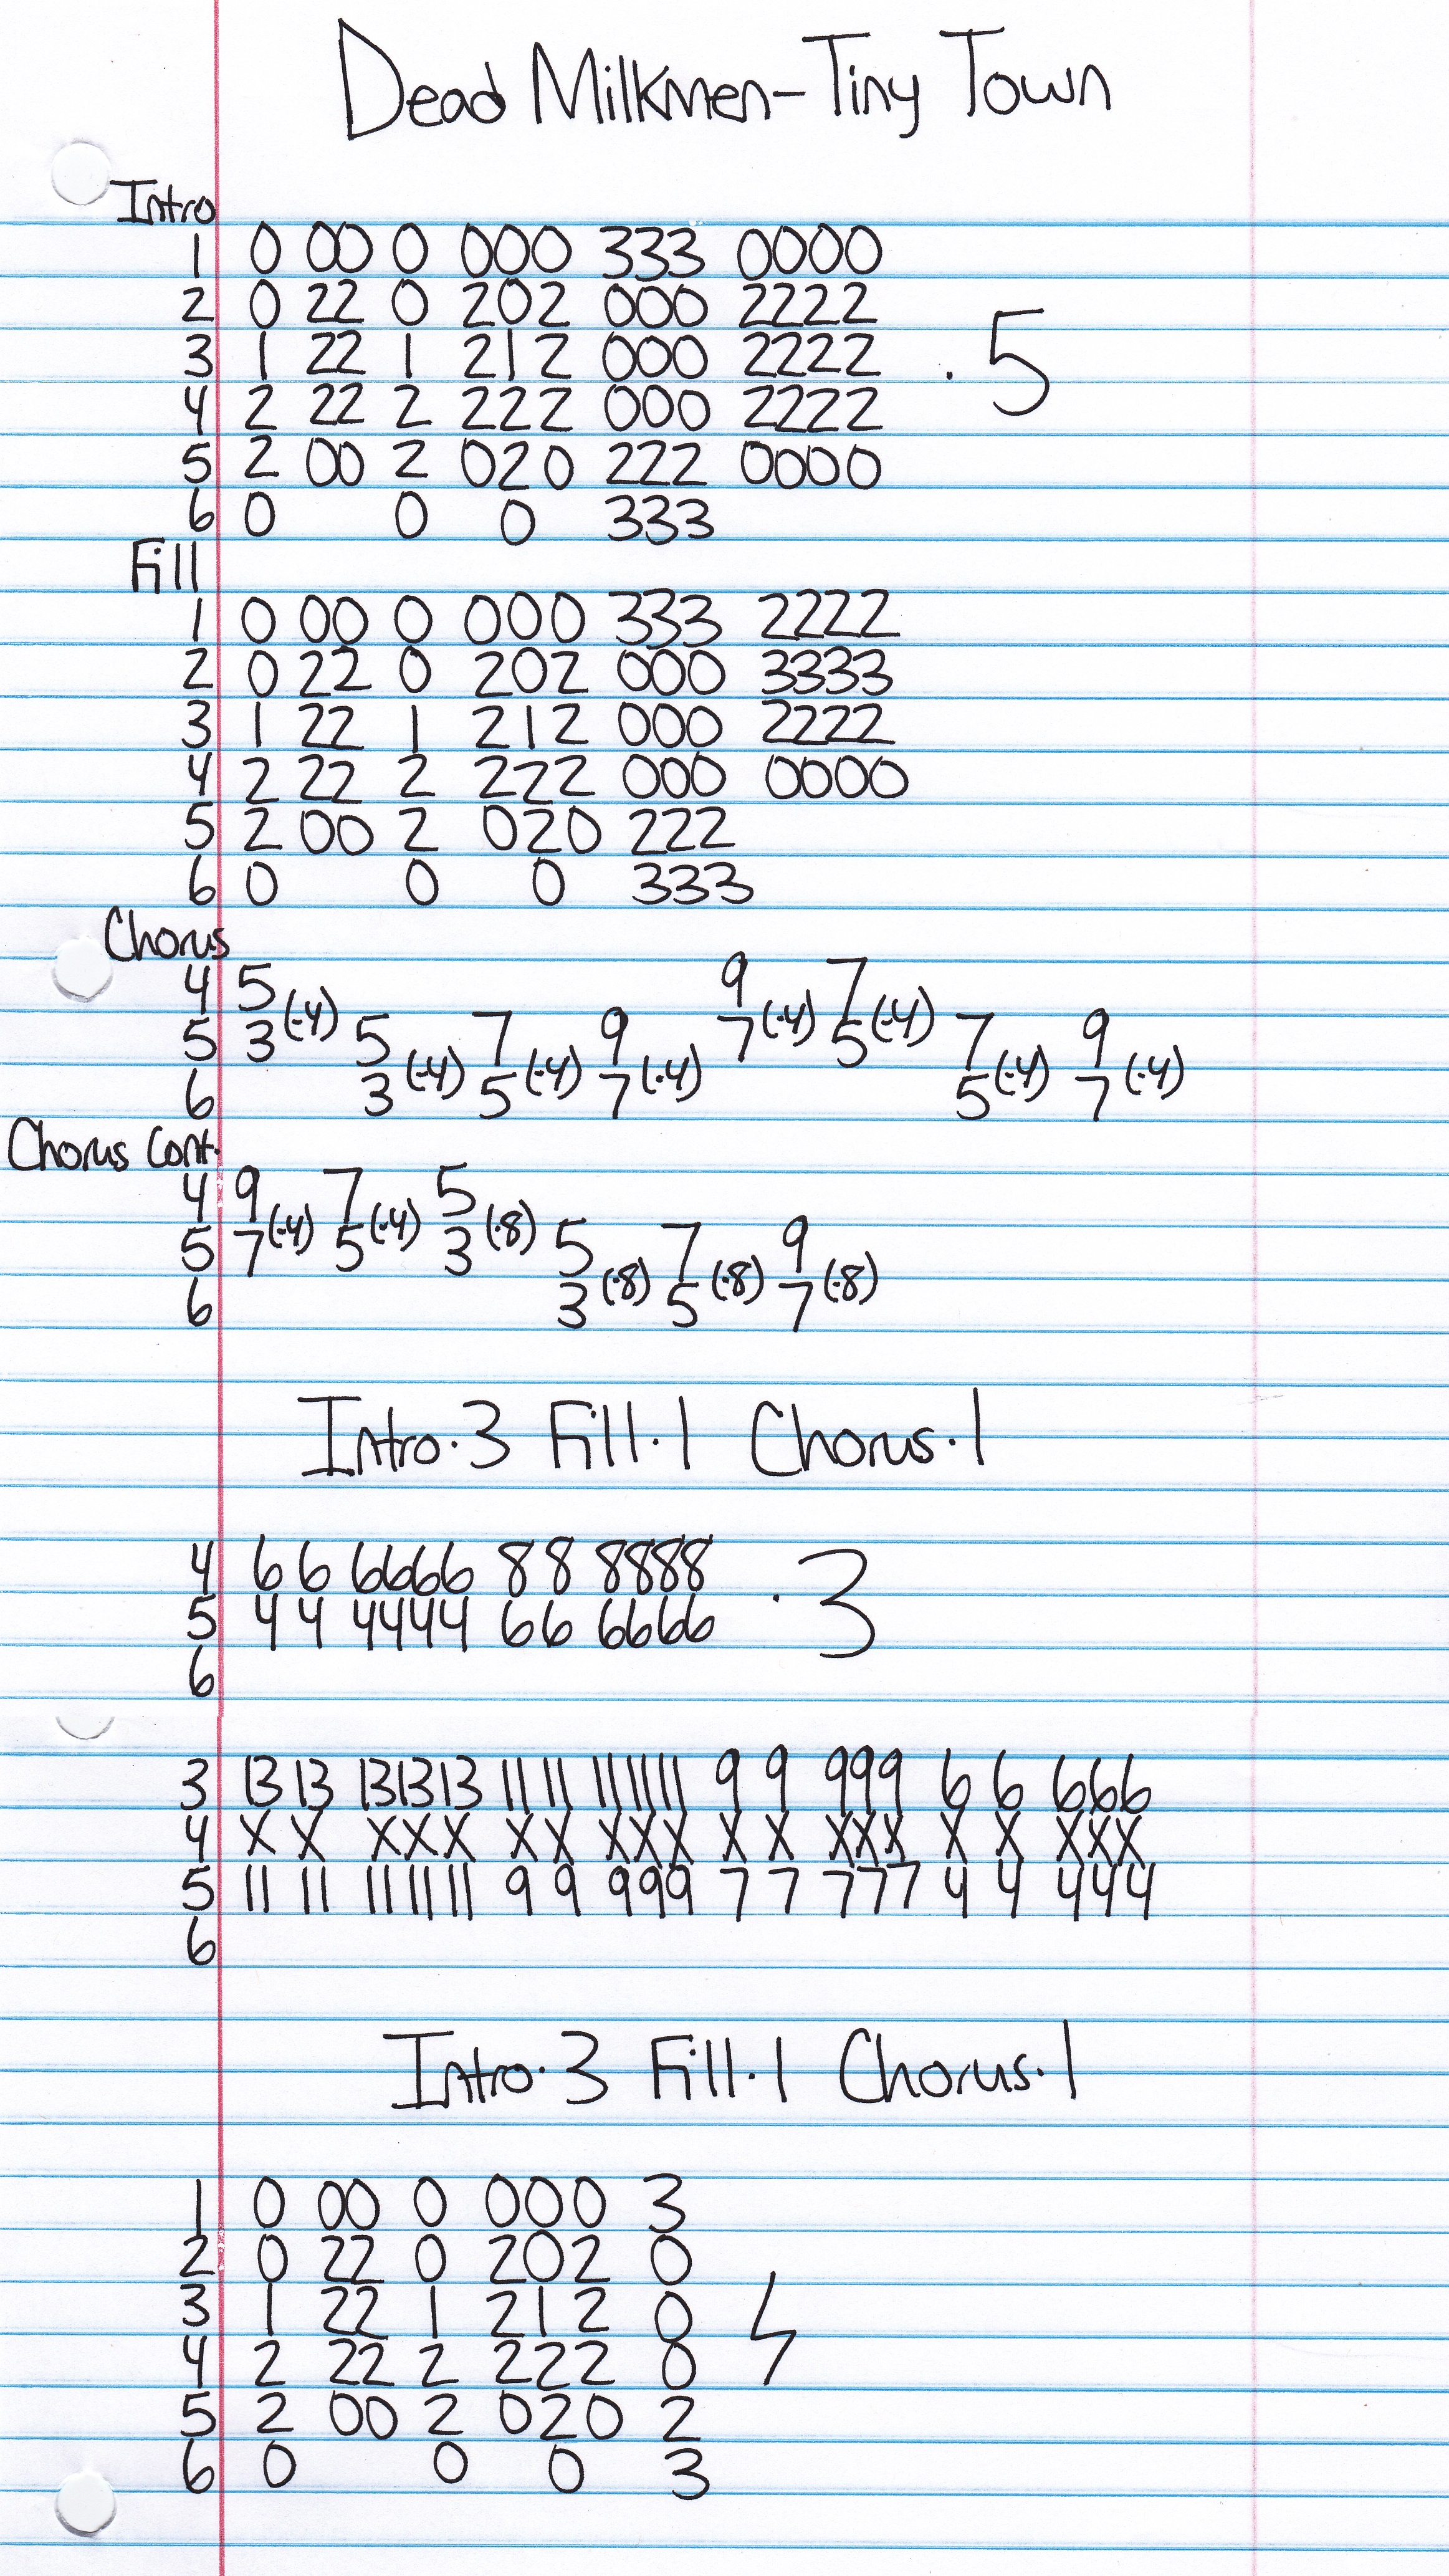 Dead Milkmen-Tiny Town
Intro
1 0 00 0 000 333 0000
2 0 22 0 202 000 2222
3 1 22 1 212 000 2222 ·5
4 2 22 2 222 000 2222
5 2 00 2 020 222 0000
6 0 0 0 333
Fill
1 0 00 0 000 333 2222
2 0 22 0 202 000 3333
3 1 22 1 212 000 2222
4 2 22 2 222 000 0000
5 2 00 2 020 222
6 0 0 0 333
Chorus
4 5 9 7
5 3 (·4) 5 7 9 7 (·4) 5 (·4) 7 9
6 3 (·4) 5 (·4) 7 (·4) 5 (·4) 7 (·4)
Chorus Cont.
4 9 7 5
5 7 (·4) 5 (·4) 3 (·8) 5 7 9
6 3 (·8) 5 (·8) 7 (·8)
Intro·3 Fill·1 Chorus·1
4 6 6 6666 8 8 8888 ·3
5 4 4 4444 6 6 6666
6
3 13 13 131313 11 11 111111 9 9 999 6 6 666
4 X X XXX X X XXX X X XXX X X XXX
5 11 11 111111 9 9 999 7 7 777 4 4 444
6
Intro·3 Fill·1 Chorus·1
1 0 00 0 000 3
2 0 22 0 202 0
3 1 22 1 212 0
4 2 22 2 222 0
5 2 00 2 020 2
6 0 0 0 3